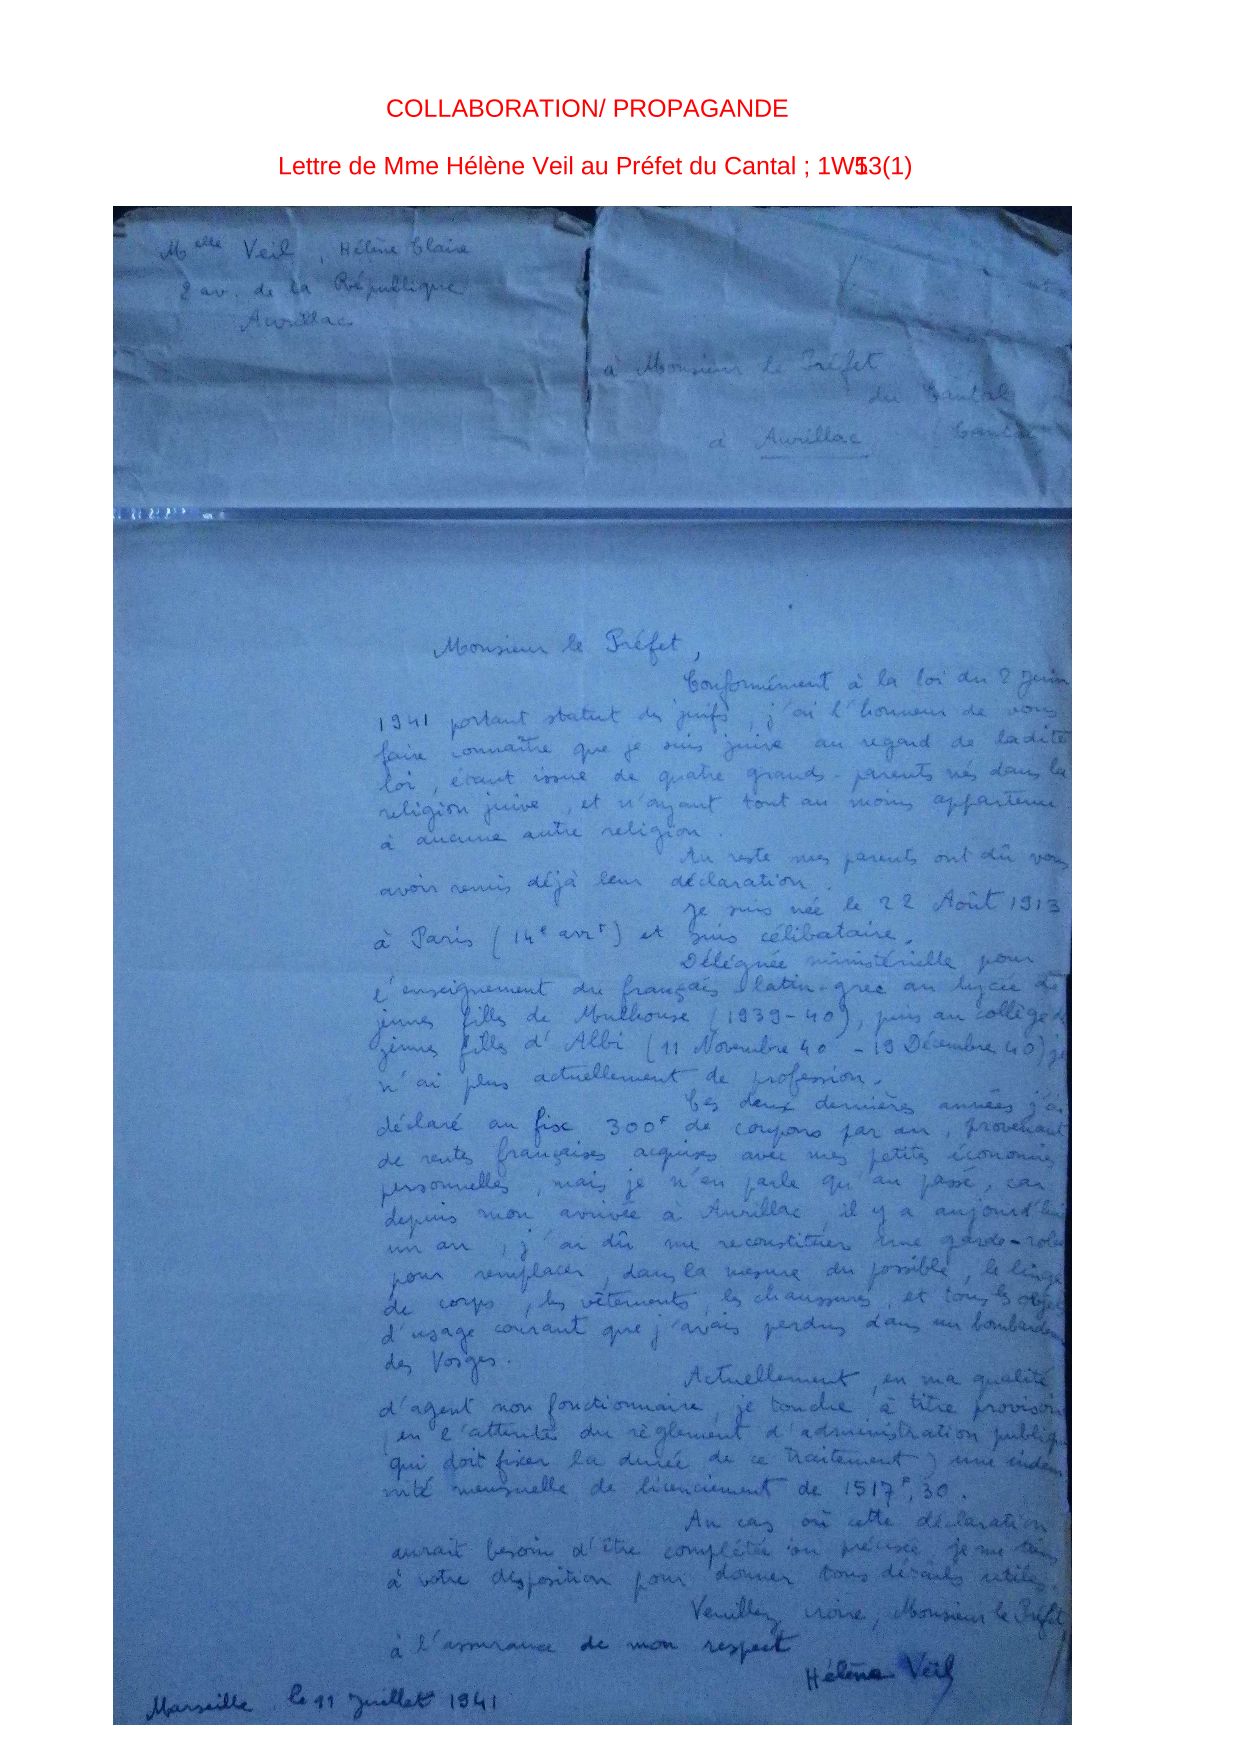 COLLABORATION/ PROPAGANDE
Lettre de Mme Hélène Veil au Préfet du Cantal ; 1W153(1)
Melle Veil, Hélène Claire
2 av. de la République
Aurillac
à Monsieur le Préfet
du Cantal
à Aurillac (Cantal
Monsieur le Préfet,
Conformément à la loi du 2 Juin
1941 portant statut des juifs, j'ai l'honneur de vous
faire connaître que je suis juive au regard de ladite
loi, étant issue de quatre grands-parents nés dans la
religion juive, et n'ayant tout au moins appartenu
à aucune autre religion.
Au reste mes parents ont dû vous
avoir remis déjà leur déclaration.
Je suis née le 22 Août 1913
à Paris (14e arrt) et suis célibataire.
Déléguée ministérielle pour
l'enseignement du français latin-grec au lycée de
jeunes filles de Mulhouse (1939-40), puis au collège de
jeunes filles d'Albi (11 Novembre 40 - 19 Décembre 40) je
n'ai plus actuellement de profession.
Ces deux dernières années j'ai
déclaré au fisc 300F de coupons par an, provenant
de rentes françaises acquises avec mes petites économies
personnelles, mais je n'en parle qu'au passé, car
depuis mon arrivée à Aurillac, il y a aujourd'hui
un an, j'ai dû me reconstituer une garde-robe
pour remplacer, dans la mesure du possible, le linge
de corps, les vêtements, les chaussures, et tous les objets
d'usage courant que j'avais perdus dans un bombardem
des Vosges.
Actuellement, en ma qualité
d'agent non fonctionnaire, je touche à titre provisoire
(en l'attente du règlement d'administration publique
qui doit fixer la durée de ce traitement) une indem
nité mensuelle de licenciement de 1517F,30.
Au cas où cette déclaration
aurait besoin d'être complétée ou précisée, je me tiens
à votre disposition pour donner tous détails utiles.
Veuillez croire, Monsieur le Préfet,
à l'assurance de mon respect
Hélène Veil
Marseille, le 11 Juillet 1941